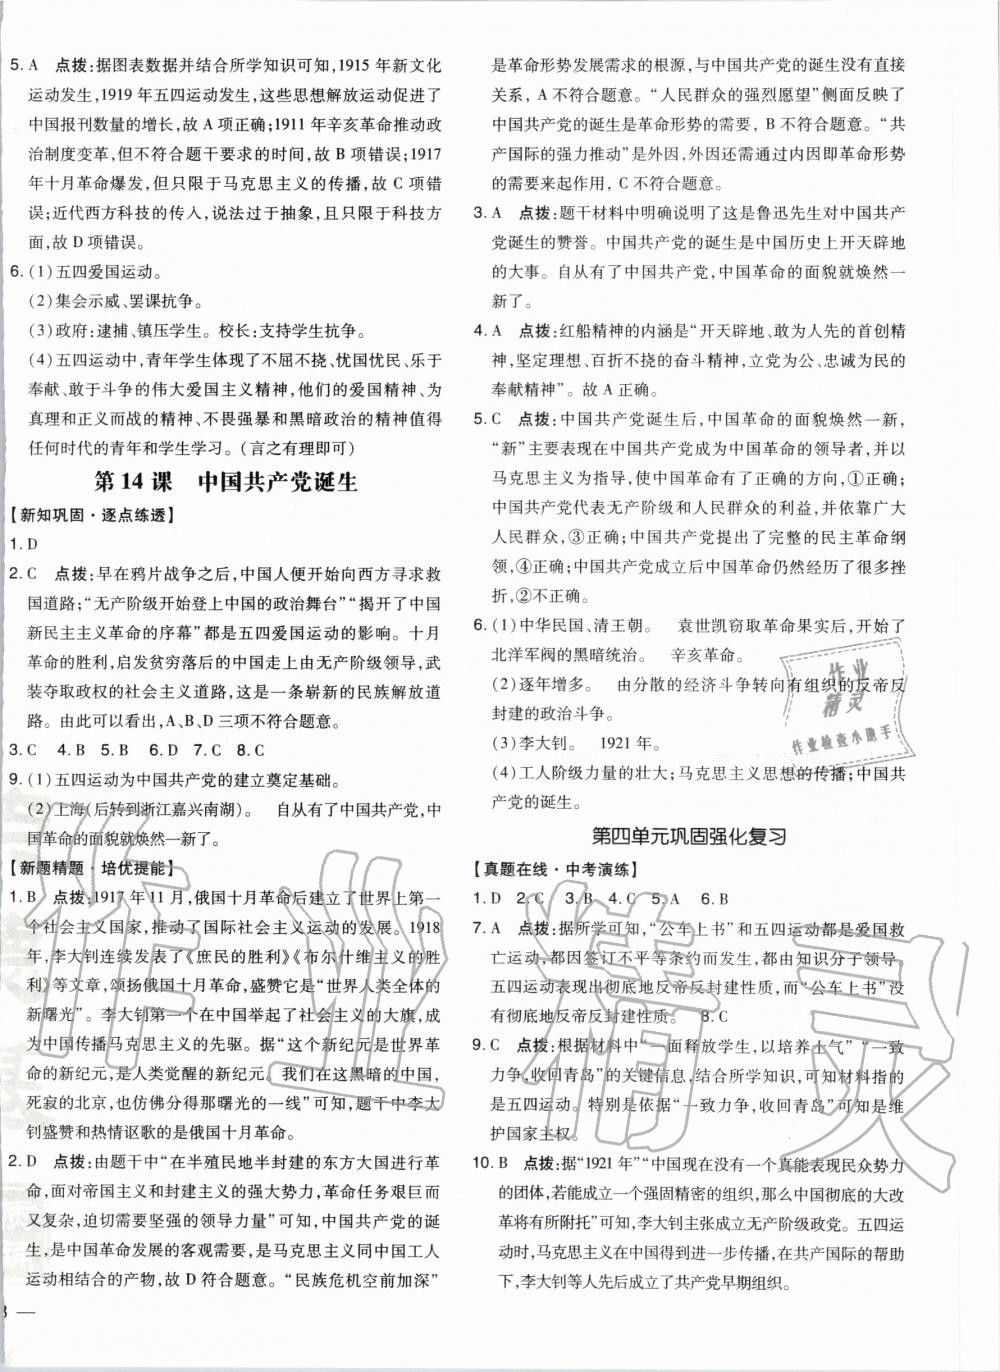 5. A　点拨:据图表数据并结合所学知识可知,1915 年新文化
运动发生,1919 年五四运动发生,这些思想解放运动促进了
中国报刊数量的增长,故 A 项正确;1911 年辛亥革命推动政
治制度变革,但不符合题干要求的时间,故 B 项错误;1917
年十月革命爆发,但只限于马克思主义的传播,故 C 项错
误;近代西方科技的传入,说法过于抽象,且只限于科技方
面,故 D 项错误。
6. (1)五四爱国运动。
(2)集会示威、罢课抗争。
(3)政府:逮捕、镇压学生。校长:支持学生抗争。
(4)五四运动中,青年学生体现了不屈不挠、忧国忧民、乐于
奉献、敢于斗争的伟大爱国主义精神,他们的爱国精神、为
真理和正义而战的精神、不畏强暴和黑暗政治的精神值得
任何时代的青年和学生学习。(言之有理即可)
第 14 课　中国共产党诞生
【新知巩固·逐点练透】
1. D
2. C　点拨:早在鸦片战争之后,中国人便开始向西方寻求救
国道路;“无产阶级开始登上中国的政治舞台”“揭开了中国
新民主主义革命的序幕”都是五四爱国运动的影响。十月
革命的胜利,启发贫穷落后的中国走上由无产阶级领导、武
装夺取政权的社会主义道路,这是一条崭新的民族解放道
路。由此可以看出,A、B、D 三项不符合题意。
3. C　4. B　5. B　6. D　7. C　8. C
9. (1)五四运动为中国共产党的建立奠定基础。
(2)上海(后转到浙江嘉兴南湖)。　自从有了中国共产党,中
国革命的面貌就焕然一新了。
【新题精题·培优提能】
1. B　点拨:1917 年 11 月,俄国十月革命后建立了世界上第一
个社会主义国家,推动了国际社会主义运动的发展。1918
年,李大钊连续发表了《庶民的胜利》《布尔什维主义的胜
利》等文章,颂扬俄国十月革命,盛赞它是“世界人类全体的
新曙光”。李大钊第一个在中国举起了社会主义的大旗,成为
中国传播马克思主义的先驱。据“这个新纪元是世界革命
的新纪元,是人类觉醒的新纪元。我们在这黑暗的中国,
死寂的北京,也仿佛分得那曙光的一线”可知,题干中李大
钊盛赞和热情讴歌的是俄国十月革命。
2. D　点拨:由题干中“在半殖民地半封建的东方大国进行革
命,面对帝国主义和封建主义的强大势力,革命任务艰巨而
又复杂,迫切需要坚强的领导力量”可知,中国共产党的诞
生,是中国革命发展的客观需要,是马克思主义同中国工人
运动相结合的产物,故 D 符合题意。“民族危机空前加深”
3 —
是革命形势发展需求的根源,与中国共产党的诞生没有直接
关系,A 不符合题意。“人民群众的强烈愿望”侧面反映了
中国共产党的诞生是革命形势的需要,B 不符合题意。“共
产国际的强力推动”是外因,外因还需通过内因即革命形势
的需要来起作用,C 不符合题意。
3. A　点拨:题干材料中明确说明了这是鲁迅先生对中国共产
党诞生的赞誉。中国共产党的诞生是中国历史上开天辟地
的大事。自从有了中国共产党,中国革命的面貌就焕然一
新了。
4. A　点拨:红船精神的内涵是“开天辟地、敢为人先的首创精
神,坚定理想、百折不挠的奋斗精神,立党为公、忠诚为民的
奉献精神”。故 A 正确。
5. C　点拨:中国共产党诞生后,中国革命的面貌焕然一新,
“新”主要表现在中国共产党成为中国革命的领导者,并以
马克思主义为指导,使中国革命有了正确的方向,①正确;
中国共产党代表无产阶级和人民群众的利益,并依靠广大
人民群众,③正确;中国共产党提出了完整的民主革命纲
领,④正确;中国共产党成立后中国革命仍然经历了很多挫
折,②不正确。
6. (1)中华民国、清王朝。　袁世凯窃取革命果实后,开始了
北洋军阀的黑暗统治。　辛亥革命。
(2)逐年增多。　由分散的经济斗争转向有组织的反帝反
封建的政治斗争。
(3)李大钊。　1921 年。
(4)工人阶级力量的壮大;马克思主义思想的传播;中国共
产党的诞生。
第四单元巩固强化复习
【真题在线·中考演练】
1. D　2. C　3. B　4. C　5. A　6. B
7. A　点拨:据所学可知,“公车上书”和五四运动都是爱国救
亡运动,都因签订不平等条约而发生,都由知识分子领导。
五四运动表现出彻底地反帝反封建性质,而“公车上书”没
有彻底地反帝反封建性质。　8. C
9. C　点拨:根据材料中“一面释放学生,以培养士气”“一致
力争,收回青岛”的关键信息,结合所学知识,可知材料指的
是五四运动。特别是依据“一致力争,收回青岛”可知是维
护国家主权。
10. B　点拨:据“1921 年”“中国现在没有一个真能表现民众势力
的团体,若能成立一个强固精密的组织,那么中国彻底的大改
革将有所附托”可知,李大钊主张成立无产阶级政党。五四运
动时,马克思主义在中国得到进一步传播,在共产国际的帮助
下,李大钊等人先后成立了共产党早期组织。
作业
精灵
作业检查小助手
作业精灵